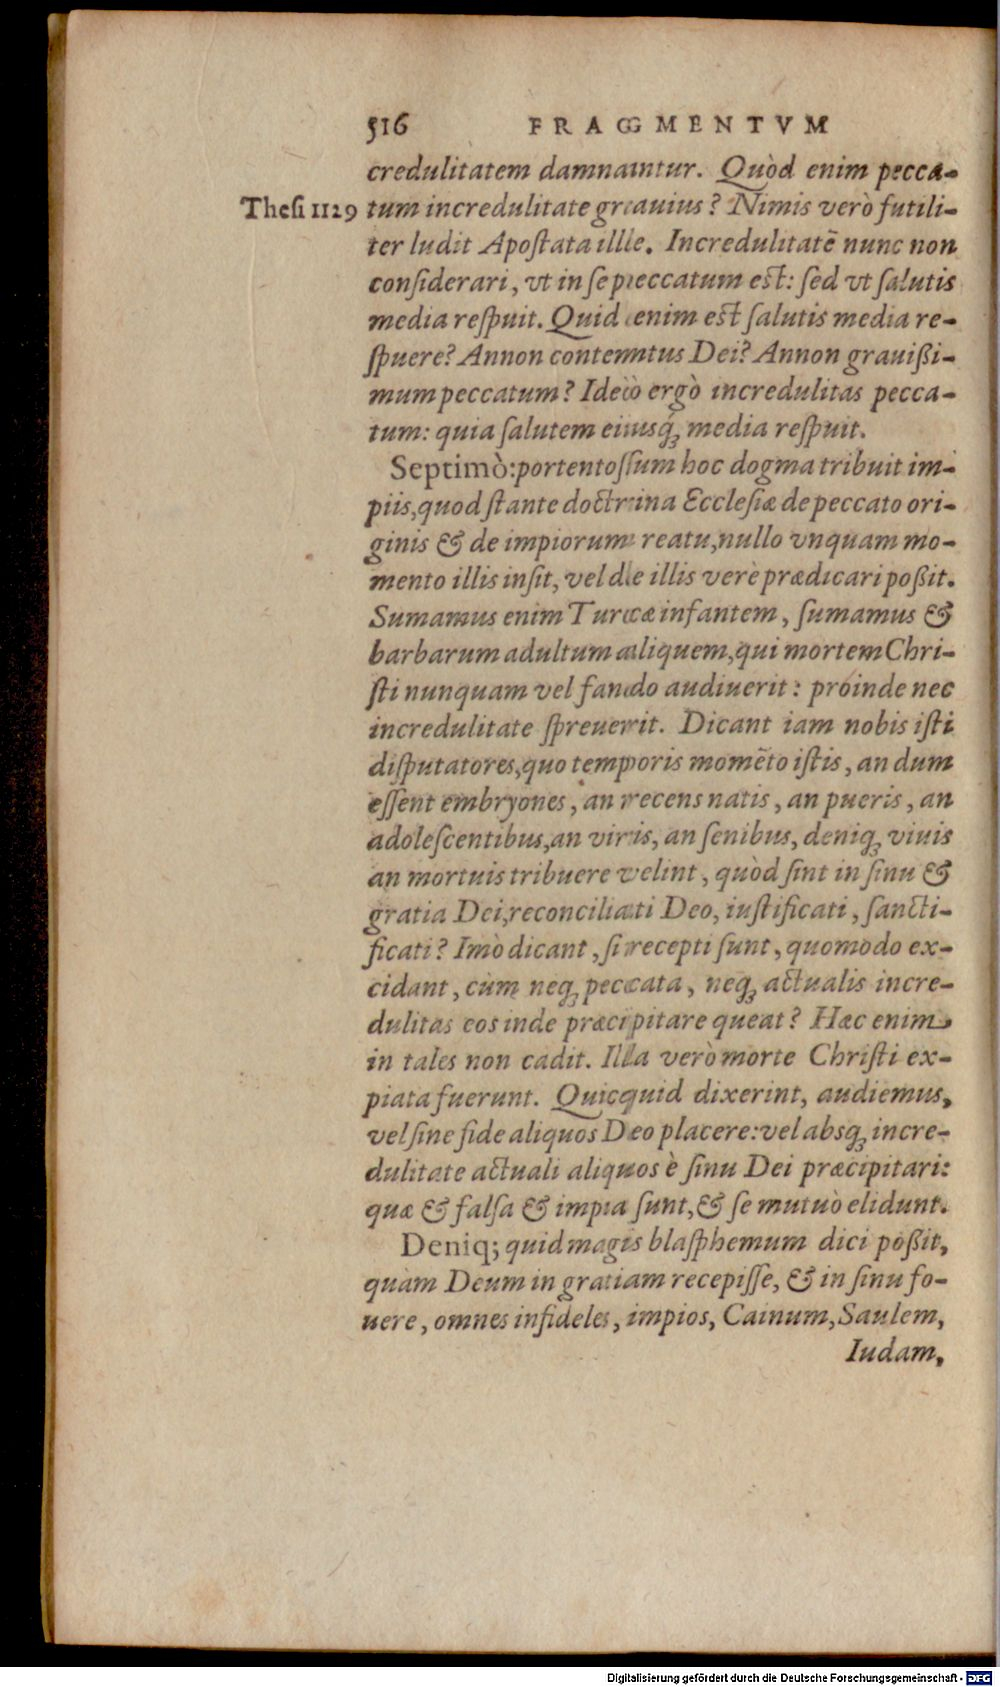 516 FRAGMENTVM
credulitatem damnantur. Quòd enim pecca-
Thesi 1129 tum incredulitate grauius? Nimis verò futili-
ter ludit Apostata ille. Incredulitatē nunc non
considerari, vt in se peccatum est: sed vt salutis
media respuit. Quid enim est salutis media re-
spuere? Annon contemtus Dei? Annon grauißi-
mum peccatum? Ideò ergò incredulitas pecca-
tum: quia salutem eiusq́; media respuit.
Septimò: portentosum hoc dogma tribuit im-
piis, quod stante doctrina Ecclesiæ de peccato ori-
ginis & de impiorum reatu, nullo vnquam mo-
mento illis insit, vel de illis verè prædicari poßit.
Sumamus enim Turcæ infantem, sumamus &
barbarum adultum aliquem, qui mortem Chri-
sti nunquam vel fando audiuerit: proinde nec
incredulitate spreuerit. Dicant iam nobis isti
disputatores, quo temporis momēto istis, an dum
essent embryones, an recens natis, an pueris, an
adolescentibus, an viris, an senibus, deniq; viuis
an mortuis tribuere velint, quòd sint in sinu &
gratia Dei, reconciliati Deo, iustificati, sancti-
ficati? Imò dicant, si recepti sunt, quomodo ex-
cidant, cùm neq; peccata, neq; actualis incre-
dulitas eos inde præcipitare queat? Hæc enim
in tales non cadit. Illa verò morte Christi ex-
piata fuerunt. Quicquid dixerint, audiemus,
vel sine fide aliquos Deo placere: vel absq; incre-
dulitate actuali aliquos è sinu Dei præcipitari:
quæ & falsa & impia sunt, & se mutuò elidunt.
Deniq; quid magis blasphemum dici poßit,
quàm Deum in gratiam recepisse, & in sinu fo-
uere, omnes infideles, impios, Cainum, Saulem,
Iudam,
Digitalisierung gefördert durch die Deutsche Forschungsgemeinschaft - DFG